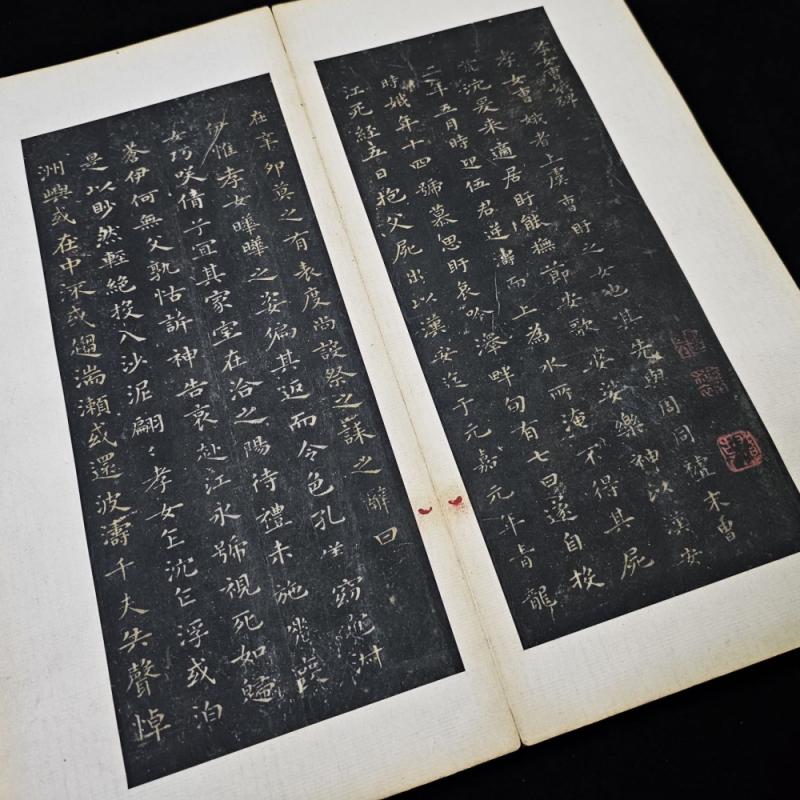 孝女曹娥碑
孝女曹娥者上虞曹盱之女也其先與周同祖末曹
荒沉爰来適居盱能撫節安歌婆娑樂神以漢安
二年五月時迎伍君逆濤而上為水所淹不得其屍
時娥年十四號慕思盱哀吟澤畔旬有七日遂自投
江死經五日抱父屍出以漢安迄于元嘉元年青龍
在辛卯莫之有表度尚設祭之誄之辭曰
伊惟孝女曄曄之姿偏其返而令色孔儀窈窕淑
女巧咲倩兮宜其家室在洽之陽待禮未施嗟喪
蒼伊何無父孰怙訴神告哀赴江永號視死如歸
是以眇然輕絕投入沙泥翩〻孝女乍沉乍浮或泊
洲嶼或在中流或趨湍瀨或還波濤千夫失聲悼